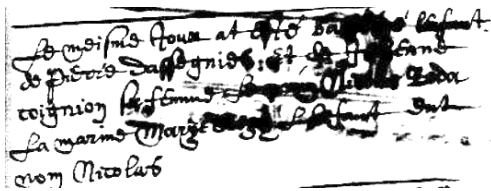 Le meisme Jour at esté baptisé lenfant
de Pierre dassegnies et de Jehenne
coignion sa femme le Nicolas
La marine Marye Lenfant eut
nom Nicolas